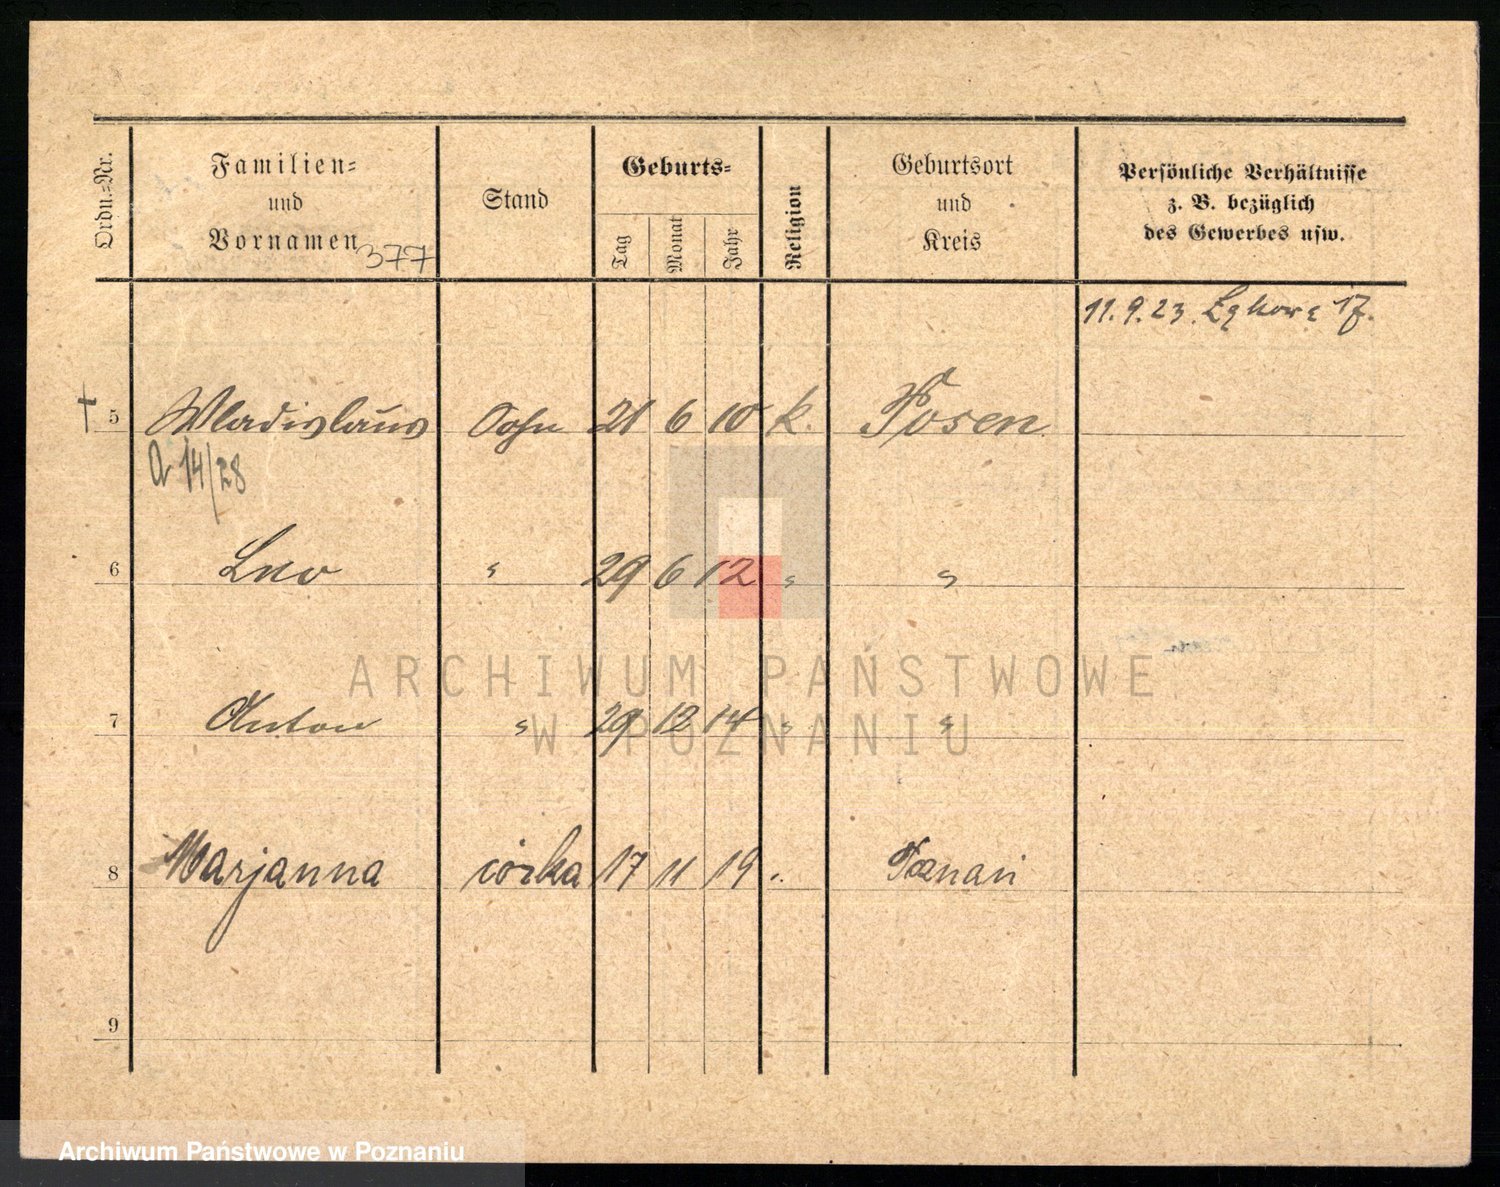 Ordn.-Nr.
Familien-
und
Vornamen
377
Stand
Geburts-
Tag
Monat
Jahr
Religion
Geburtsort
und
Kreis
Persönliche Verhältnisse
z. B. bezüglich
des Gewerbes usw.
11. 9. 23. 17.
† 5 Wladislaus Sohn 21 6 10 k. Posen
a 14/28
6 Leo " 29 6 12 " "
7 Anton " 29 12 14 " "
8 Marjanna córka 17 11 19 " Poznań
9
ARCHIWUM PAŃSTWOWE
W POZNANIU
Archiwum Państwowe w Poznaniu